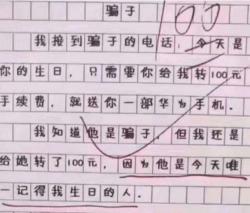 骗子
100
我接到骗子的电话,今天是
你的生日,只需要你给我转100元
手续费,就送你一部华为手机。
我知道他是骗子,但我还是
给她转了100元,因为他是今天唯
一记得我生日的人.